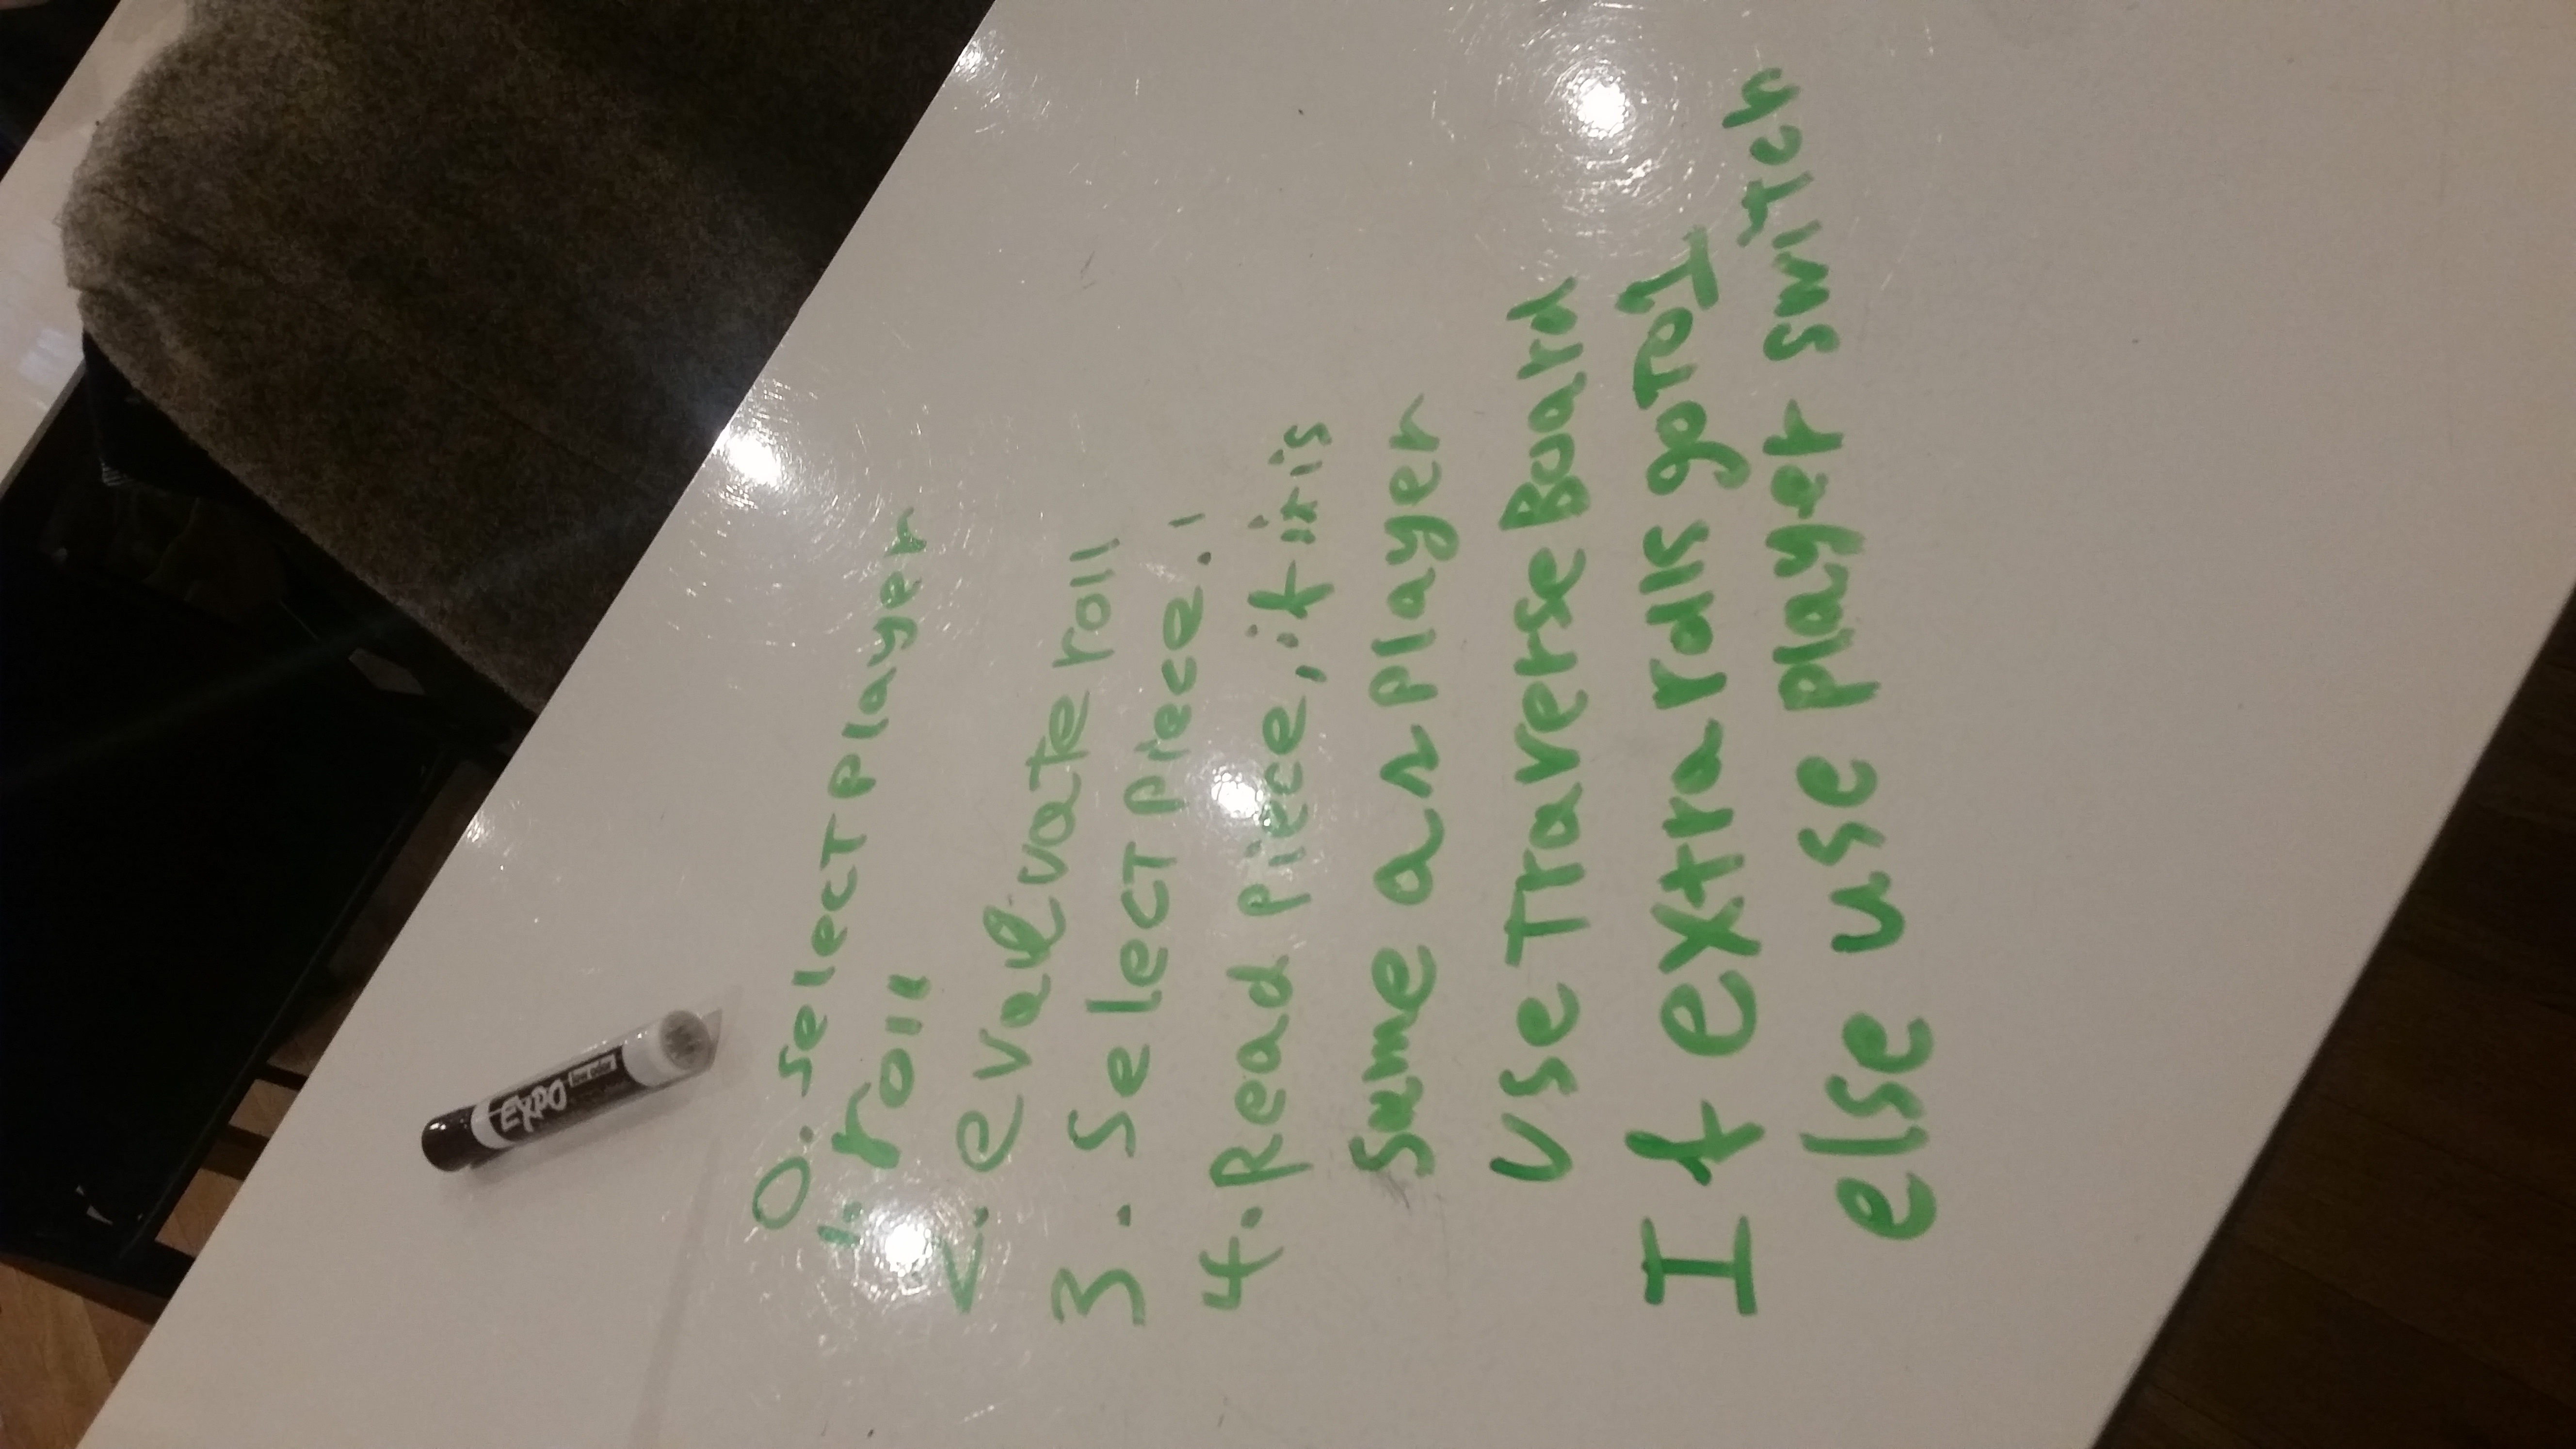 EXPO
0. select player
1. roll
2. evaluate roll
3. Select piece.
4. Read piece, if it is
same as player
Use Traverse Board
If extra rolls go to 1
else use player switch